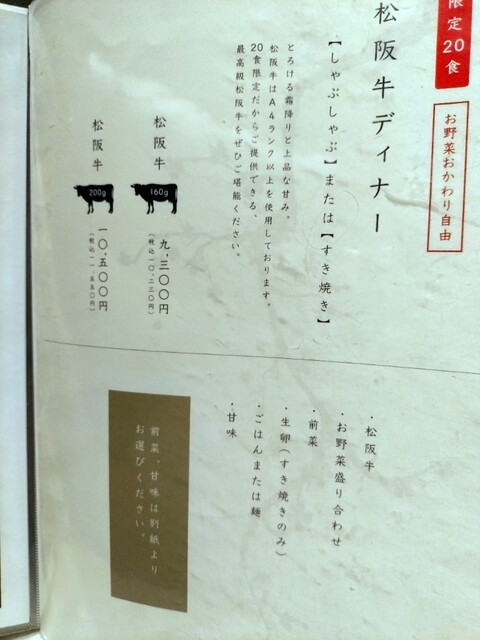 限定20食
お野菜おかわり自由
松阪牛ディナー
【しゃぶしゃぶ】または【すき焼き】
とろける霜降りと上品な甘み。
松阪牛はA4ランク以上を使用しております。
20食限定だからご提供できる、
最高級松阪牛をぜひご堪能ください。
松阪牛
160g
九,三〇〇円
(税込一〇,二三〇円)
松阪牛
200g
一〇,五〇〇円
(税込一一,五五〇円)
・松阪牛
・お野菜盛り合わせ
・前菜
・生卵(すき焼きのみ)
・ごはんまたは麺
・甘味
前菜、甘味は別紙より
お選びください。